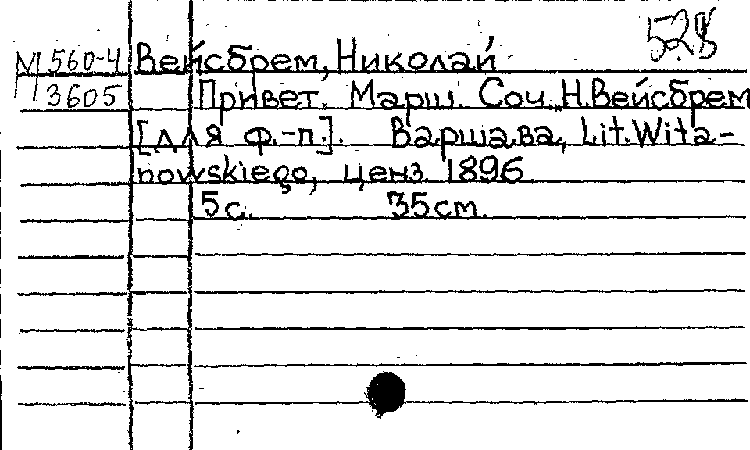 528
М 560-4 Вейсбрем, Николай
3605 Привет. Марш. Соч. Н.Вейсбрем
[для ф.-п]. Варшава, Lit.Wita-
nowskiego, ценз. 1896.
5с. 35cm.